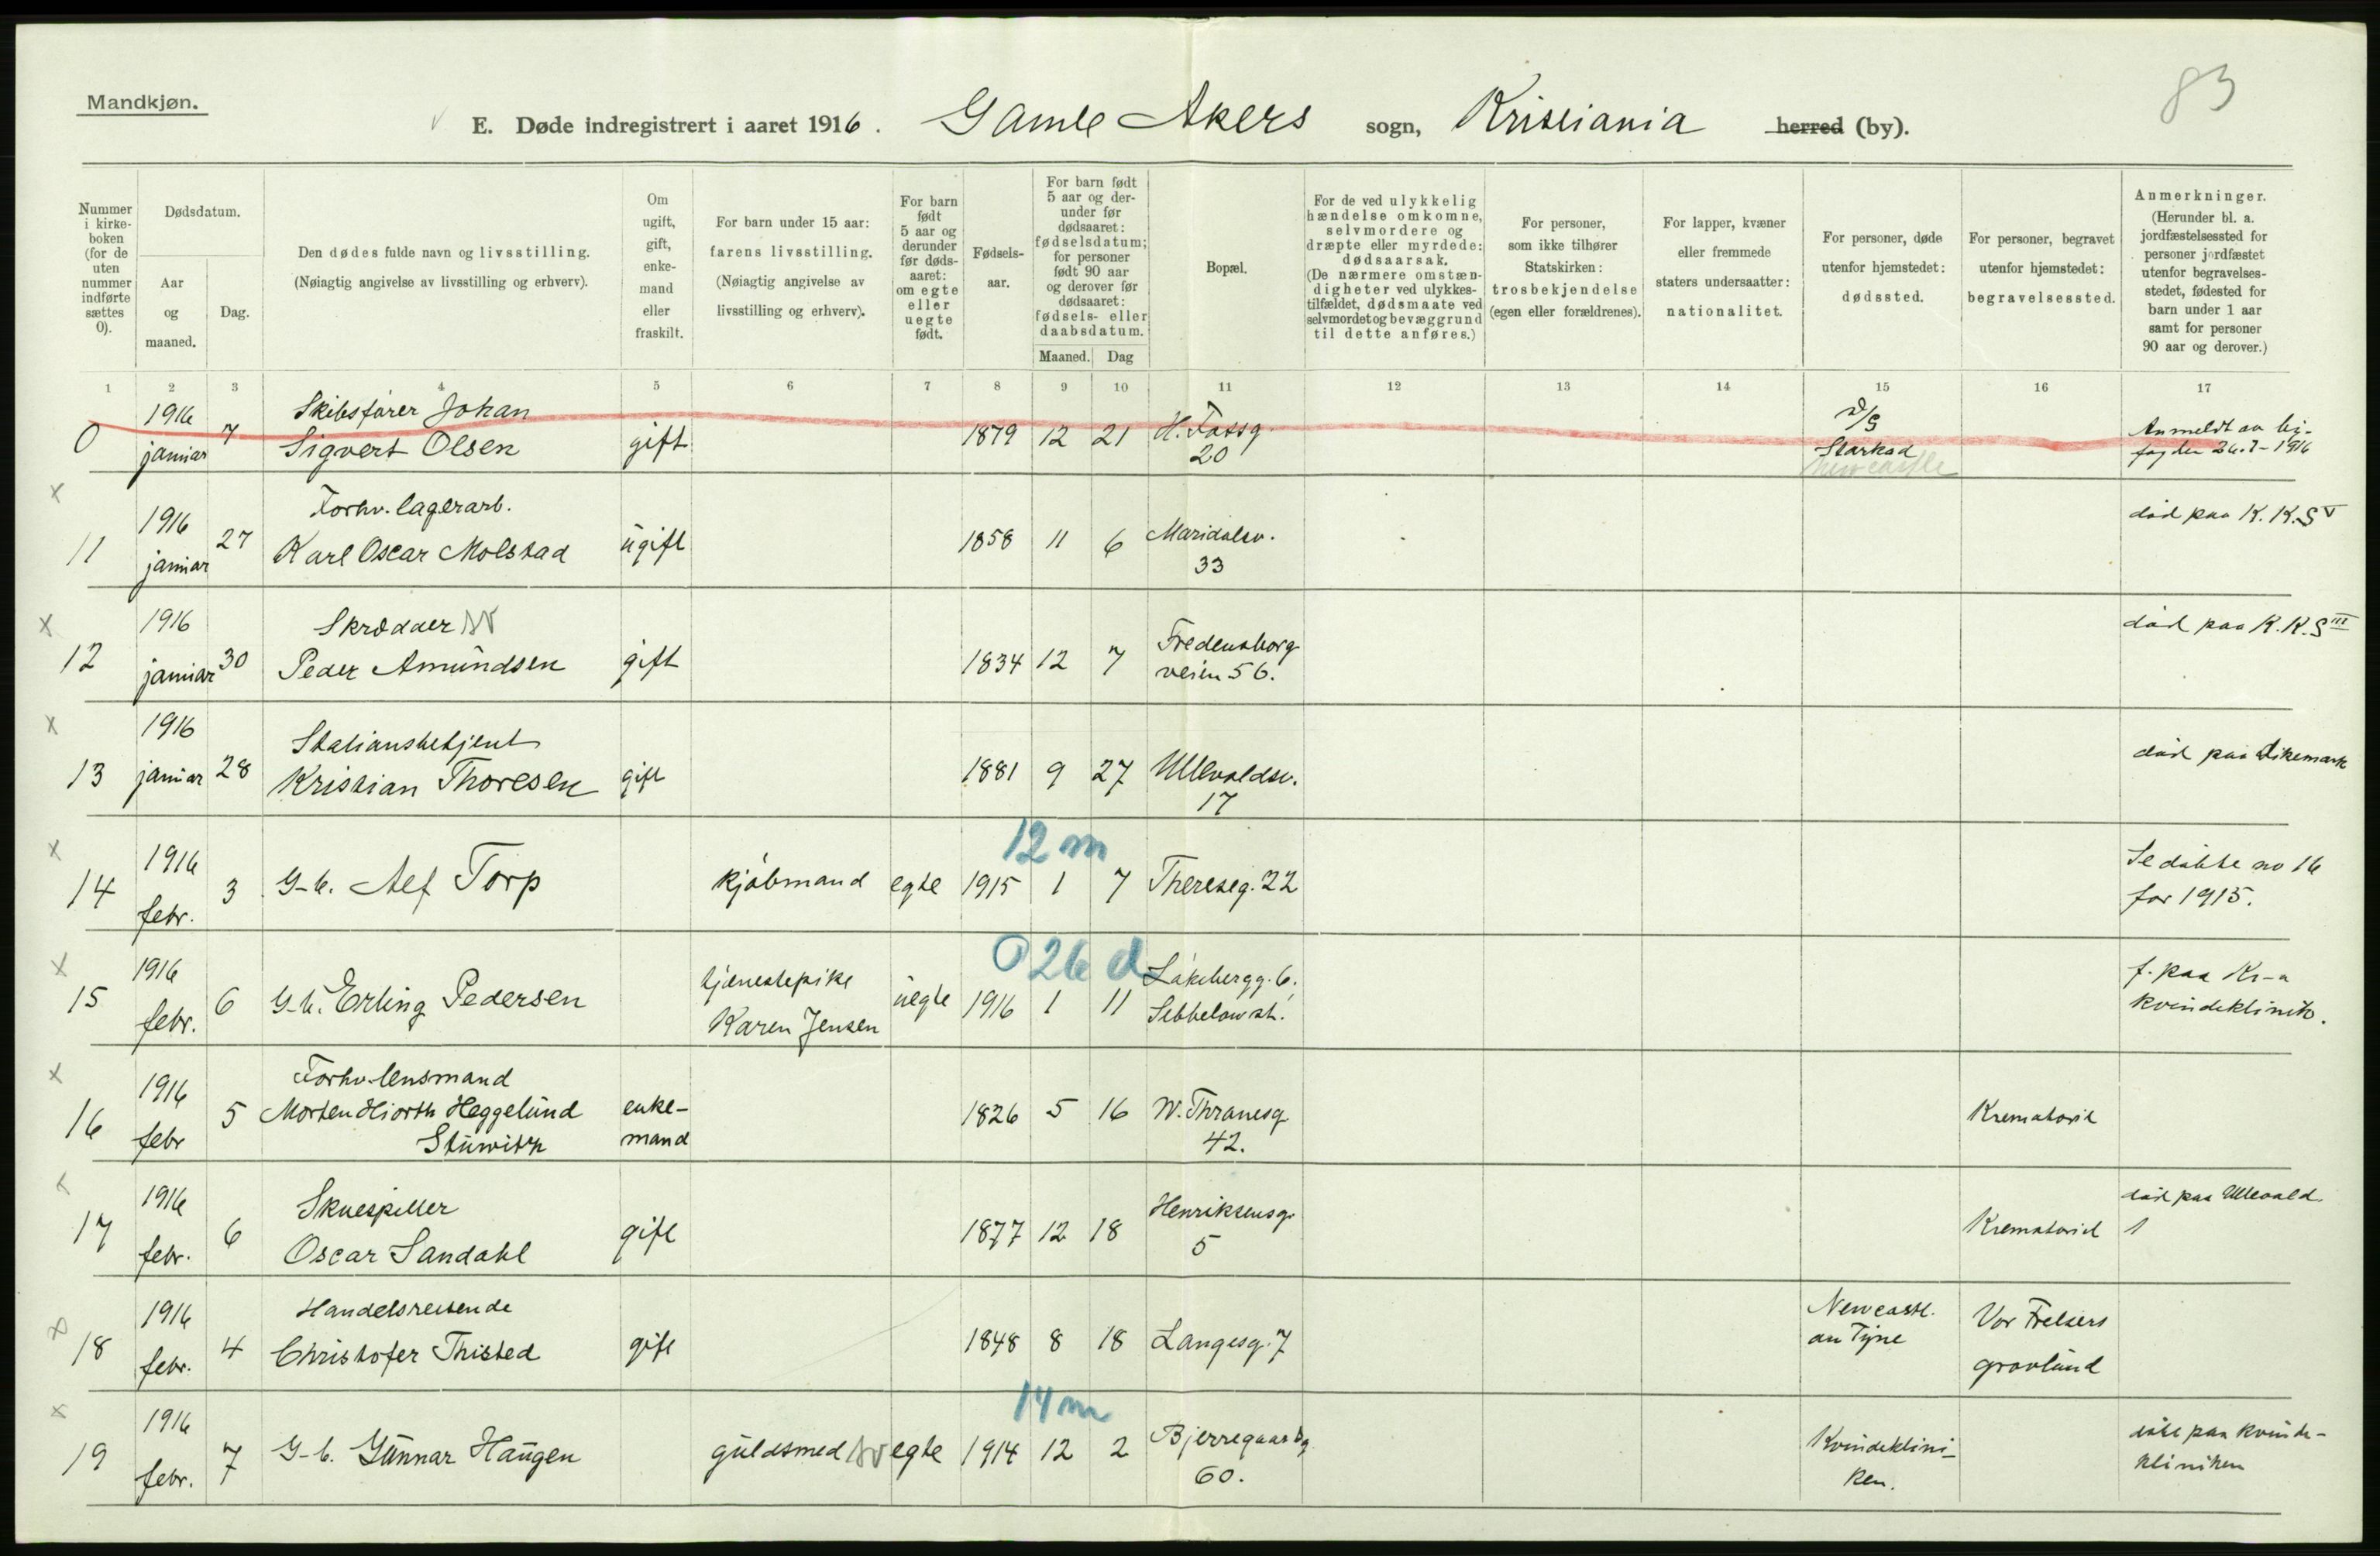 Mandkjøn.
83
E. Døde indregistrert i aaret 1916. Gamle Akers sogn, Kristiania herred (by).
Nummer i kirkeboken (for de uten nummer indførte sættes 0).
Dødsdatum.
Aar og maaned.
Dag.
Den dødes fulde navn og livsstilling.
(Nøiagtig angivelse av livsstilling og erhverv).
Om ugift, gift, enkemand eller fraskilt.
For barn under 15 aar: farens livsstilling.
(Nøiagtig angivelse av livsstilling og erhverv).
For barn født 5 aar og derunder før dødsaaret: om egte eller uegte født.
Fødselsaar.
For barn født 5 aar og derunder før dødsaaret: fødselsdatum; for personer født 90 aar og derover før dødsaaret: fødsels- eller daabsdatum.
Maaned. Dag
Bopæl.
For de ved ulykkelig hændelse omkomne, selvmordere og dræpte eller myrdede: dødsaarsak.
(De nærmere omstændigheter ved ulykkestilfældet, dødsmaate ved selvmordet og bevæggrund til dette anføres.)
For personer, som ikke tilhører Statskirken: trosbekjendelse (egen eller forældrenes).
For lapper, kvæner eller fremmede staters undersaatter: nationalitet.
For personer, døde utenfor hjemstedet: dødssted.
For personer, begravet utenfor hjemstedet: begravelsessted.
Anmerkninger.
(Herunder bl. a. jordfæstelsessted for personer jordfæstet utenfor begravelsesstedet, fødested for barn under 1 aar samt for personer 90 aar og derover.)
1 2 3 4 5 6 7 8 9 10 11 12 13 14 15 16 17
0 1916 januar 7 Skibsfører Johan Sigvert Olsen gift 1879 12 21 H. Fossg. 20 D/S Starkad Newcastle Anmeldt av by-fogden 26.7-1916
11 1916 januar 27 Forhv. lagerarb. Karl Oscar Molstad ugift 1858 11 6 Maridalsv. 33 død paa K. K. S V
12 1916 januar 30 Skrædder Peder Amundsen gift 1834 12 7 Fredensborg veien 56. død paa K. K. S III
13 1916 januar 28 Stationsbetjent Kristian Thoresen gift 1881 9 27 Ullevoldsv. 17 død paa Dikemark
14 1916 febr. 3 G-b. Alf Torp kjøbmand egte 12 m 1915 1 7 Thereseg. 22 Se døbte no 16 for 1915.
15 1916 febr. 6 G-b. Erling Pedersen tjenestepike Karen Jensen uegte 0 26 d 1916 1 11 Lakebergg. 6, Sebbelowst. f. paa Kr-a kvindeklinik.
16 1916 febr 5 Forhv. lensmand Morten Hiorth Heggelund Stuwitz enke-mand 1826 5 16 W. Thranesg. 42. Krematoriet
17 1916 febr. 6 Skuespiller Oscar Sandahl gift 1877 12 18 Henriksensg. 5 Krematoriet død paa Ullevold 1
18 1916 febr. 4 Handelsreisende Christofer Thisted gift 1848 8 18 Langesg. 7 Newcastl. on Tyne Vor Frelsers gravlund
19 1916 febr. 7 G-b. Gunnar Haugen guldsmed egte 14 m 1914 12 2 Bjerregaardsg. 60. Kvindekliniken. døbt paa kvinde-kliniken